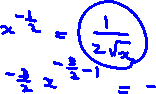 x^{-\frac{1}{2}} = \frac{1}{2\sqrt{x}}
-\frac{3}{2} x^{-\frac{3}{2}-1} = -